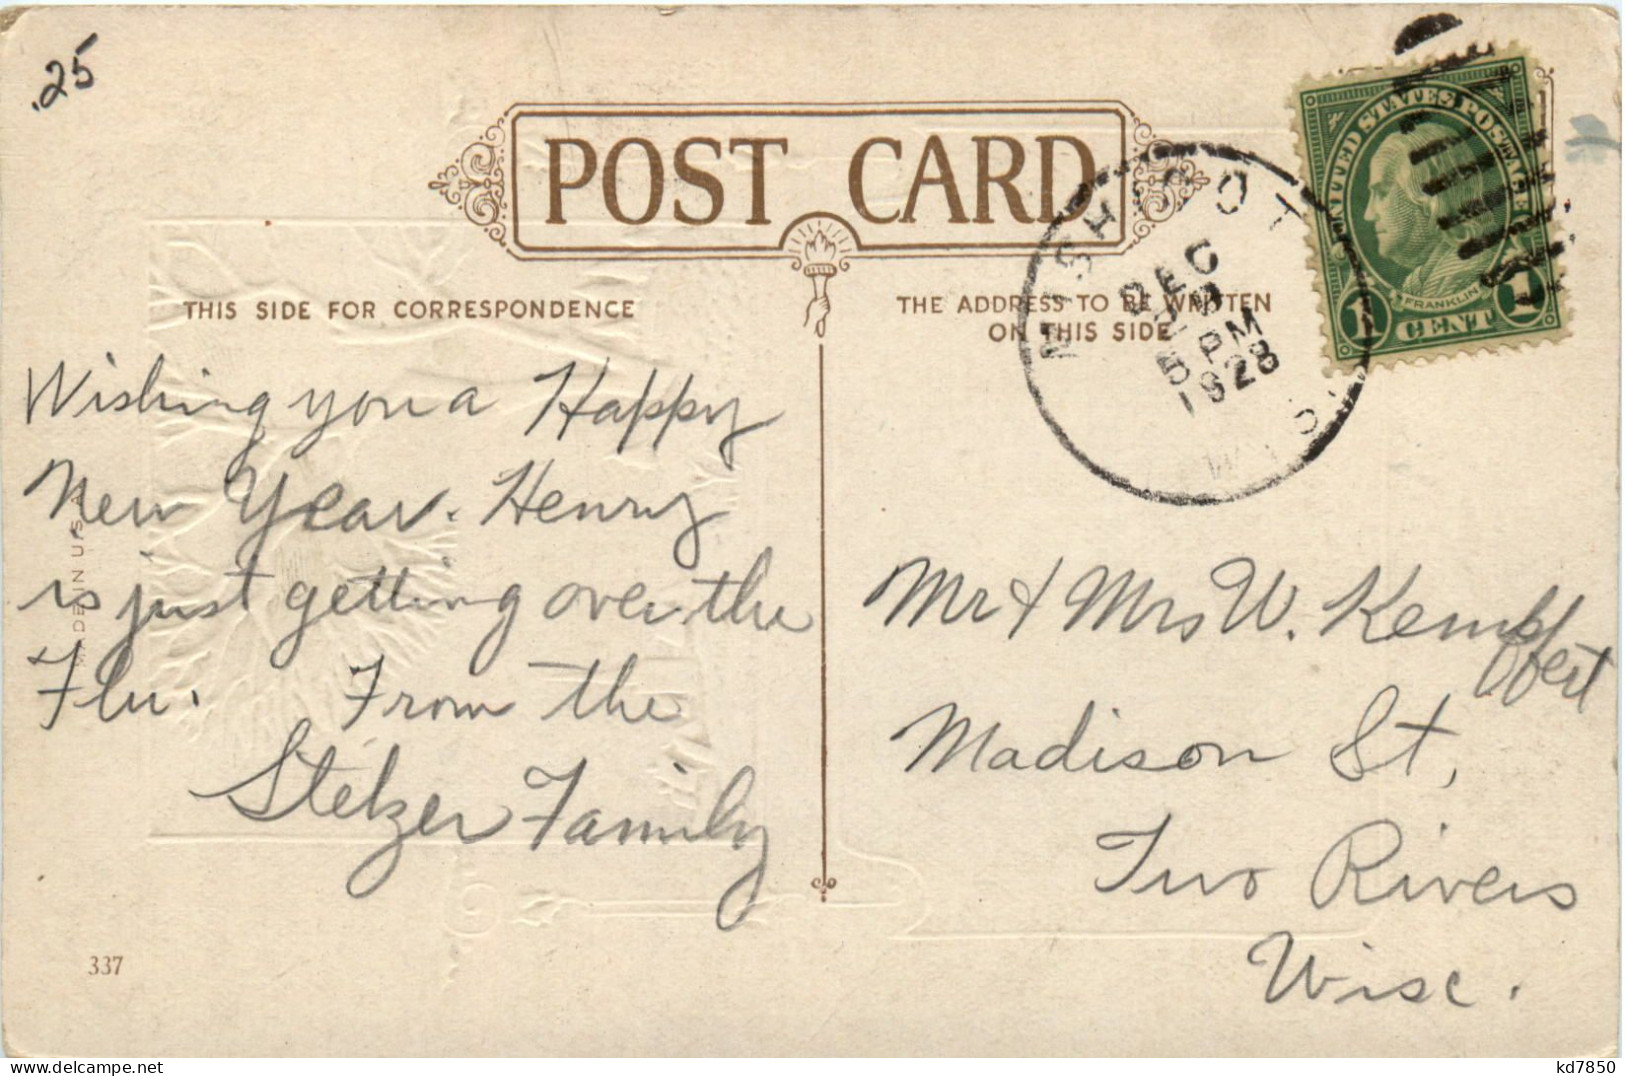 .25
POST CARD
THIS SIDE FOR CORRESPONDENCE
THE ADDRESS TO BE WRITTEN
ON THIS SIDE
UNITED STATES POSTAGE
FRANKLIN
1 CENT 1
MISHICOT
DEC
5 PM
1928
WISCONSIN
Wishing you a Happy
New Year. Henry
is just getting over the
Flu. From the
Stelzer Family
Mr & Mrs W. Kempffert
Madison St,
Two Rivers
Wisc.
337
kd7850